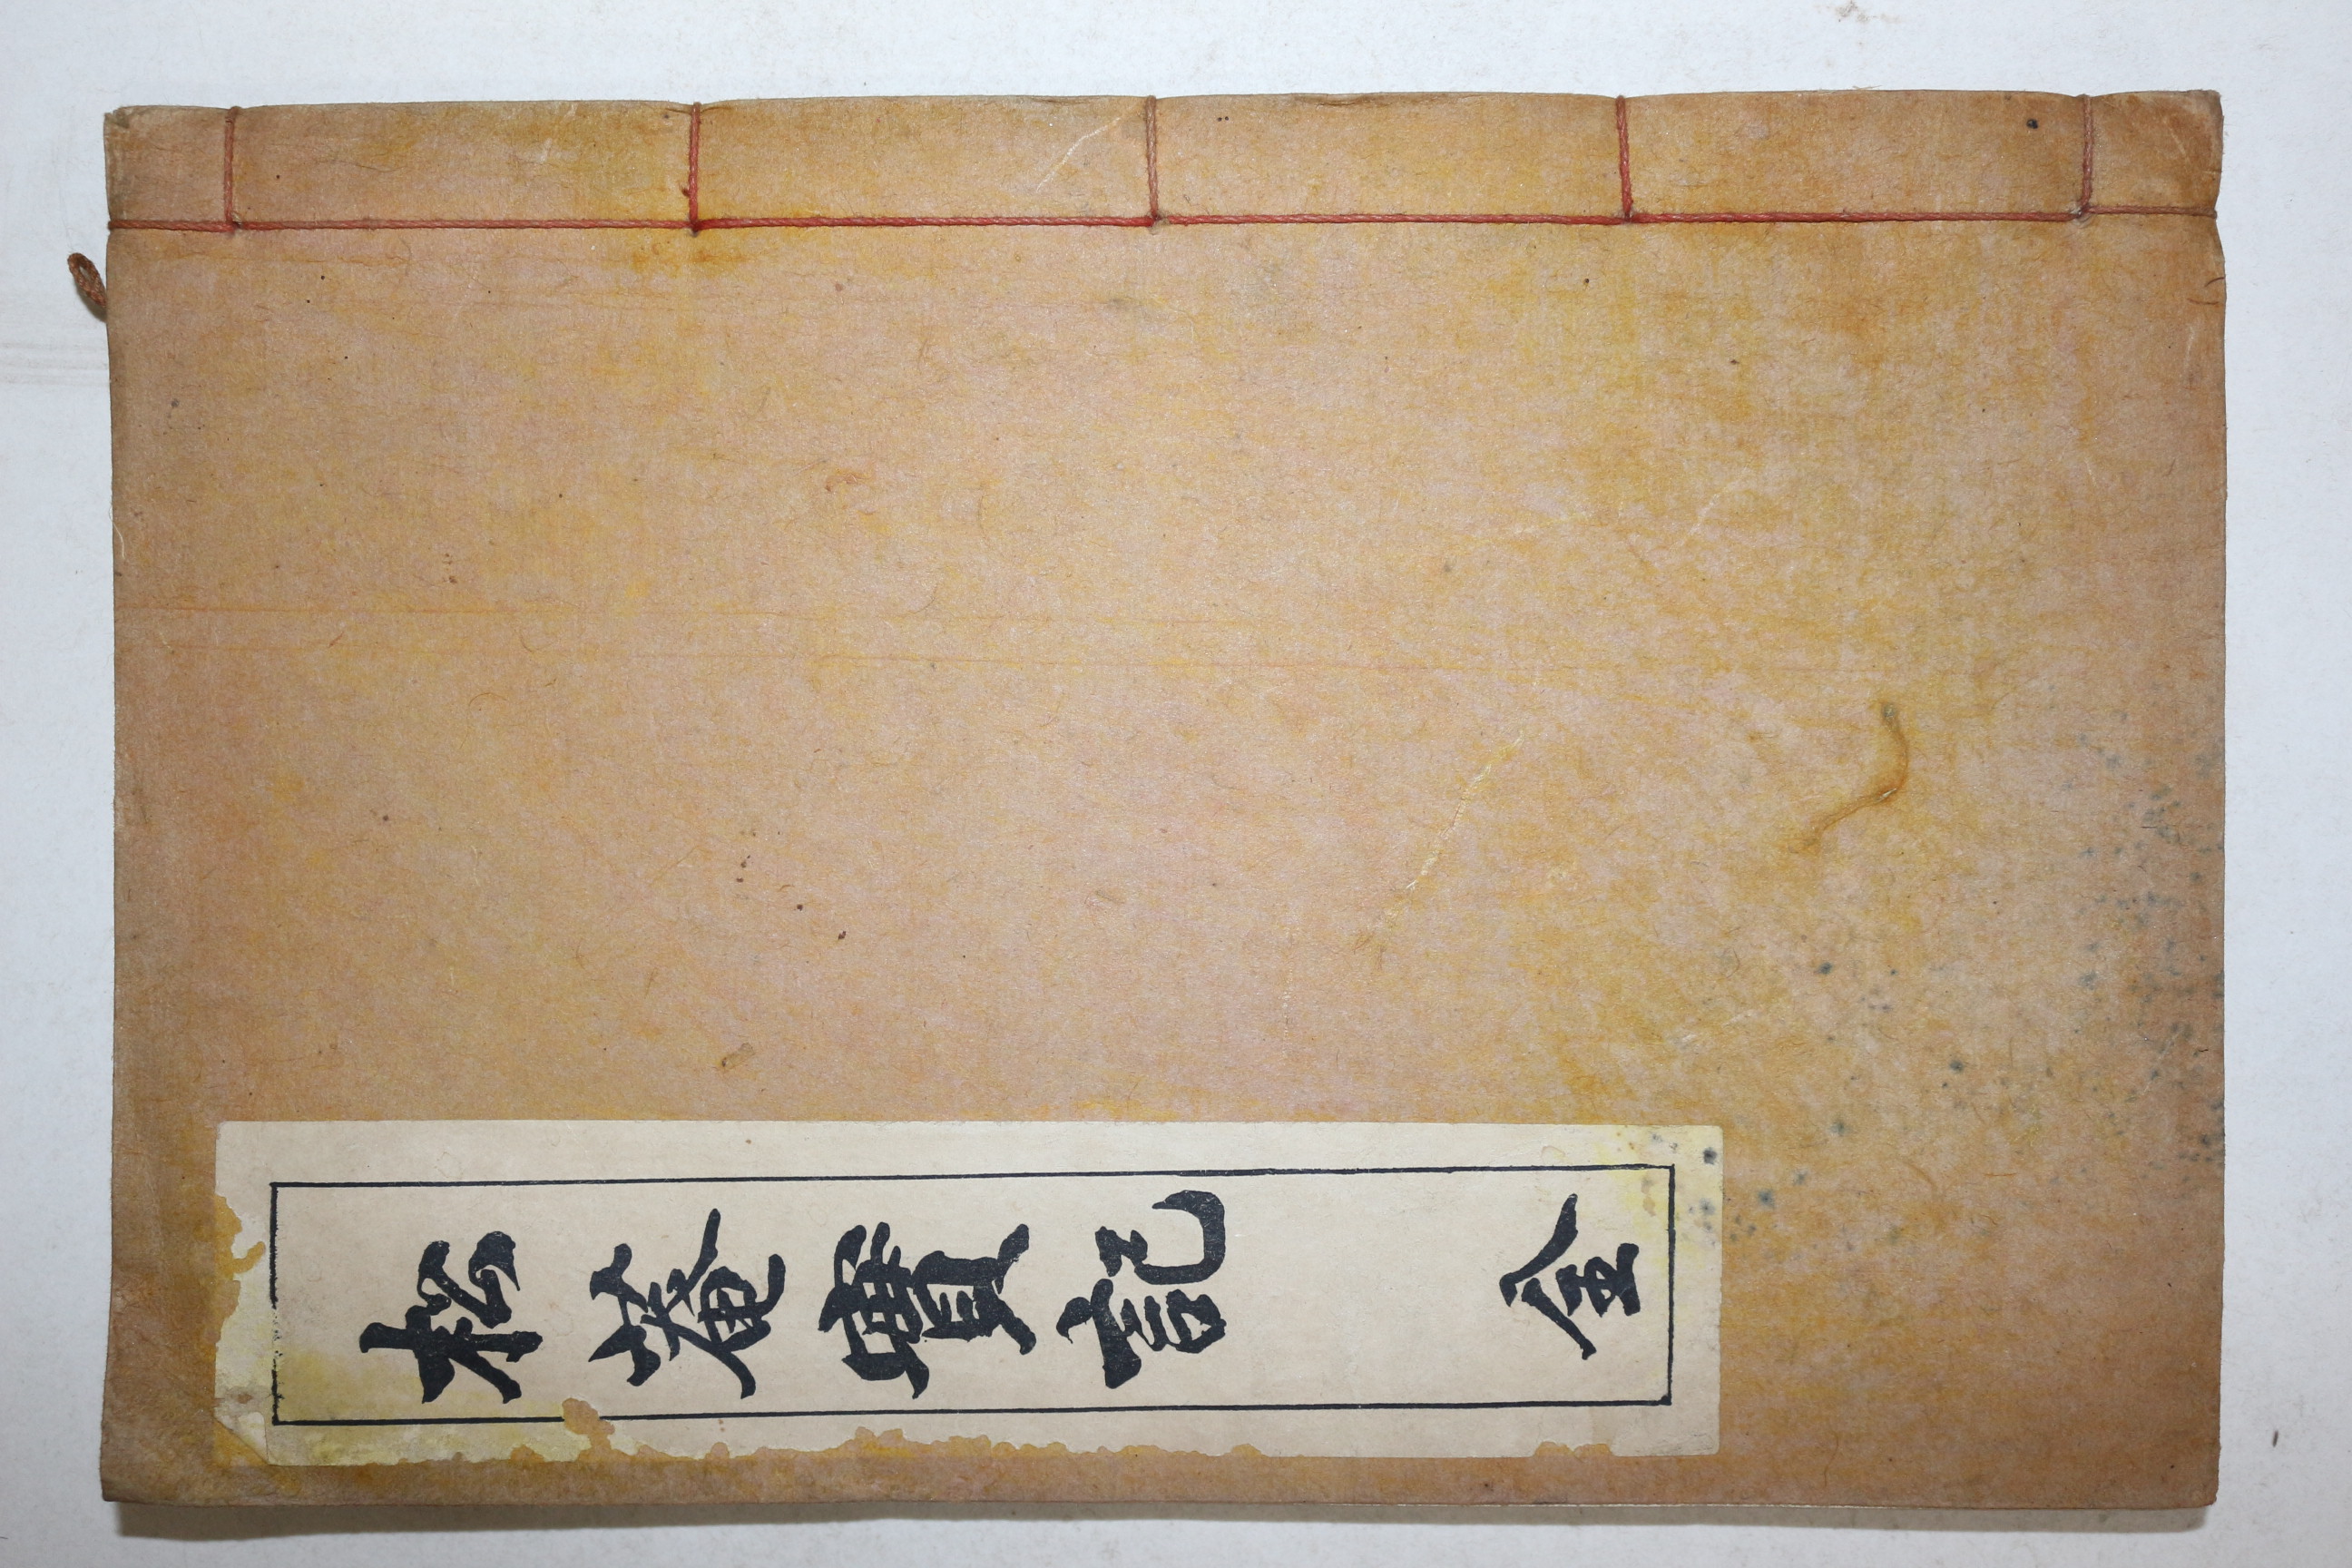 松菴實記 全